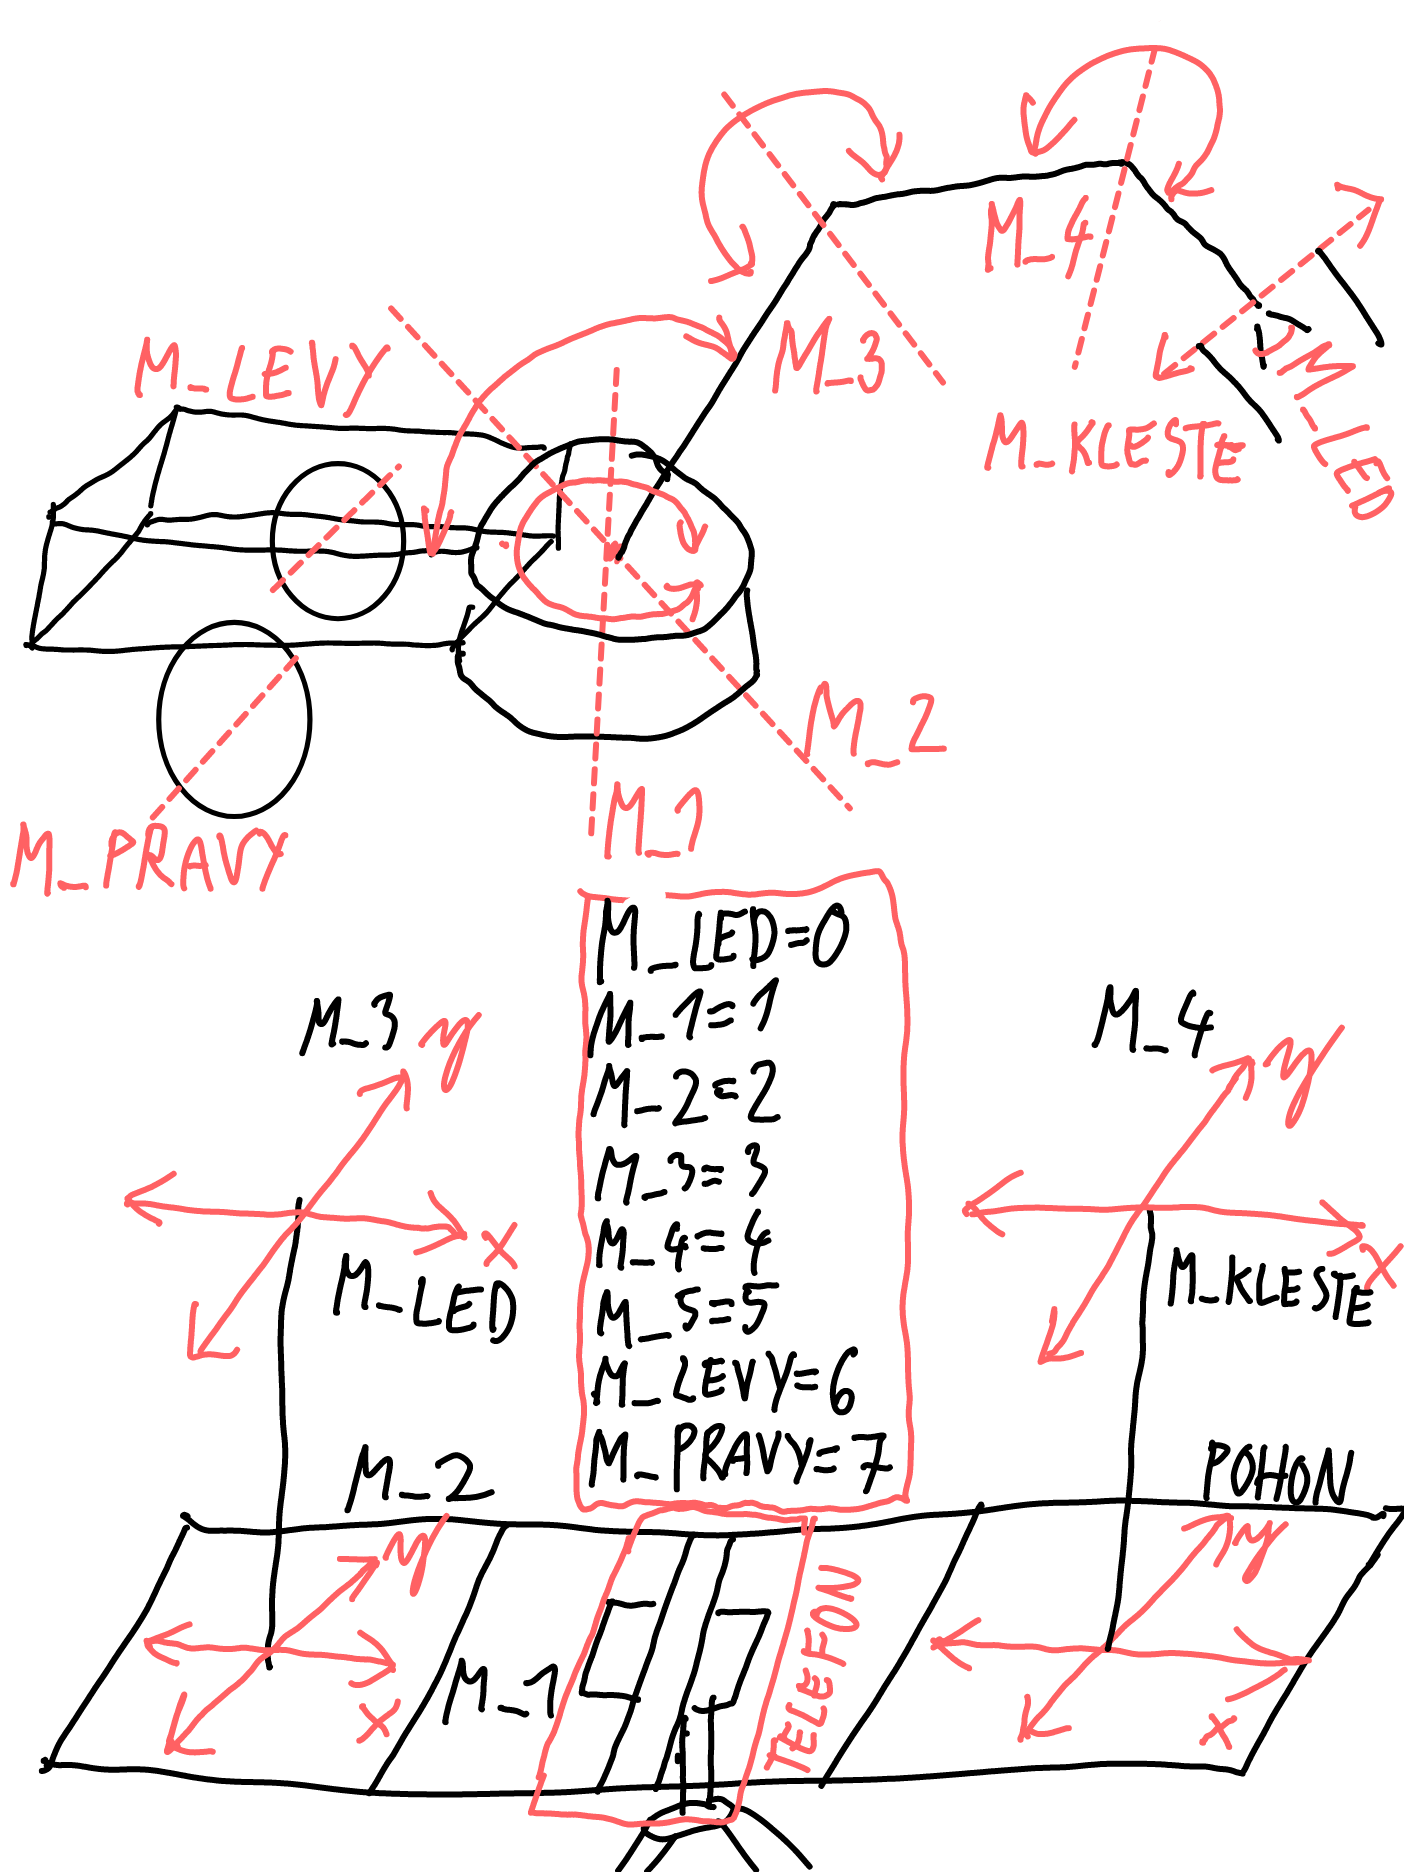 M_4
M_3
M_LEVY
M_LED
M_KLESTE
M_2
M_1
M_PRAVY
M_LED=0
M_1=1
M_2=2
M_3=3
M_4=4
M_5=5
M_LEVY=6
M_PRAVY=7
M_3 y
x
M_LED
M_4 y
x
M_KLESTE
M_2
y
x
M_1
TELEFON
POHON
y
x